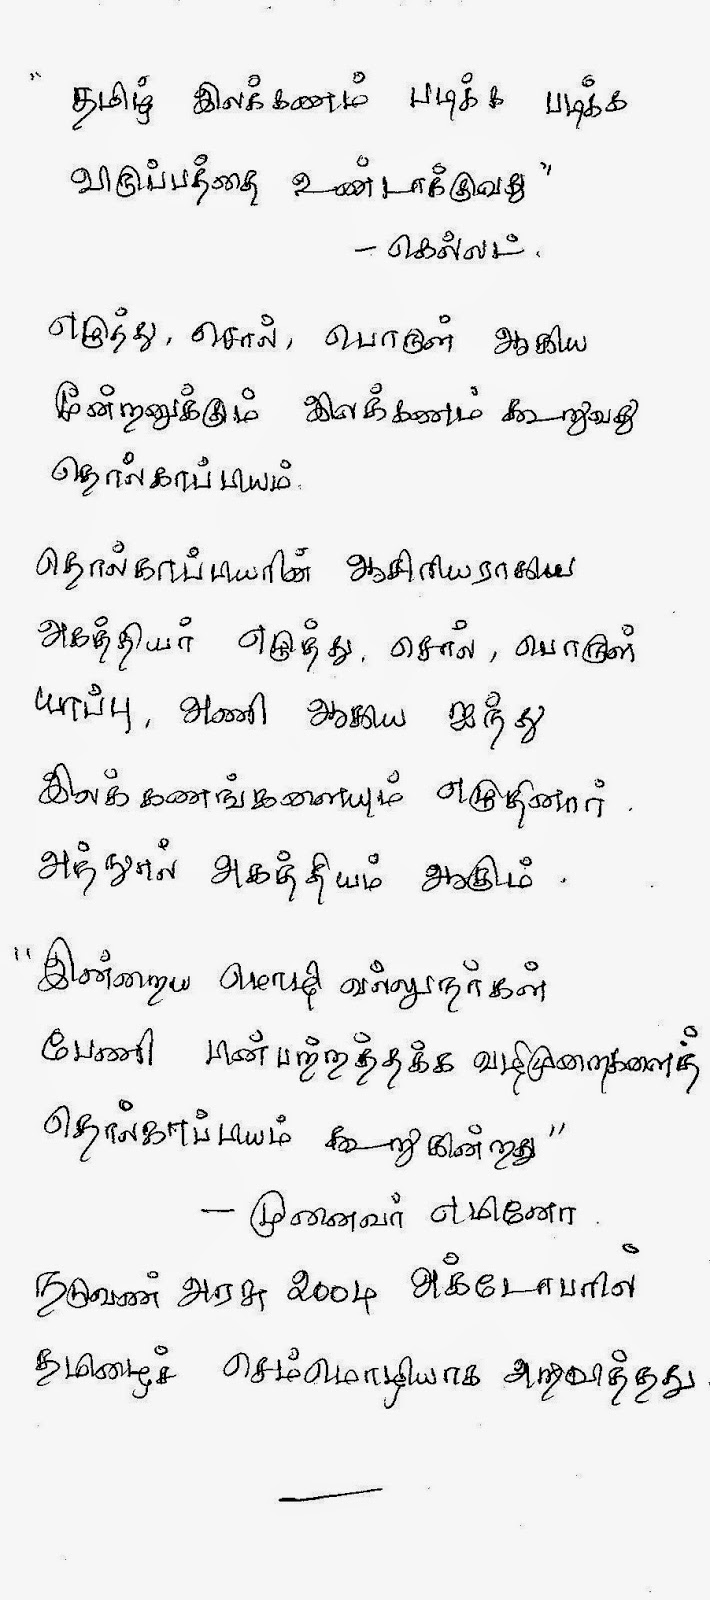 " தமிழ் இலக்கணம் படிக்க படிக்க
விருப்பத்தை உண்டாக்குவது "
– கெல்லட்.
எழுத்து, சொல், பொருள் ஆகிய
மூன்றனுக்கும் இலக்கணம் கூறுவது
தொல்காப்பியம்.
தொல்காப்பியரின் ஆசிரியராகிய
அகத்தியர் எழுத்து, சொல், பொருள்
யாப்பு, அணி ஆகிய ஐந்து
இலக்கணங்களையும் எழுதினார்.
அந்நூல் அகத்தியம் ஆகும்.
" இன்றைய மொழி வல்லுநர்கள்
பேணி பின்பற்றத்தக்க வழிமுறைகளைத்
தொல்காப்பியம் கூறுகின்றது "
– முனைவர் எமினோ.
நடுவண் அரசு 2004 அக்டோபரில்
தமிழைச் செம்மொழியாக அறிவித்தது.